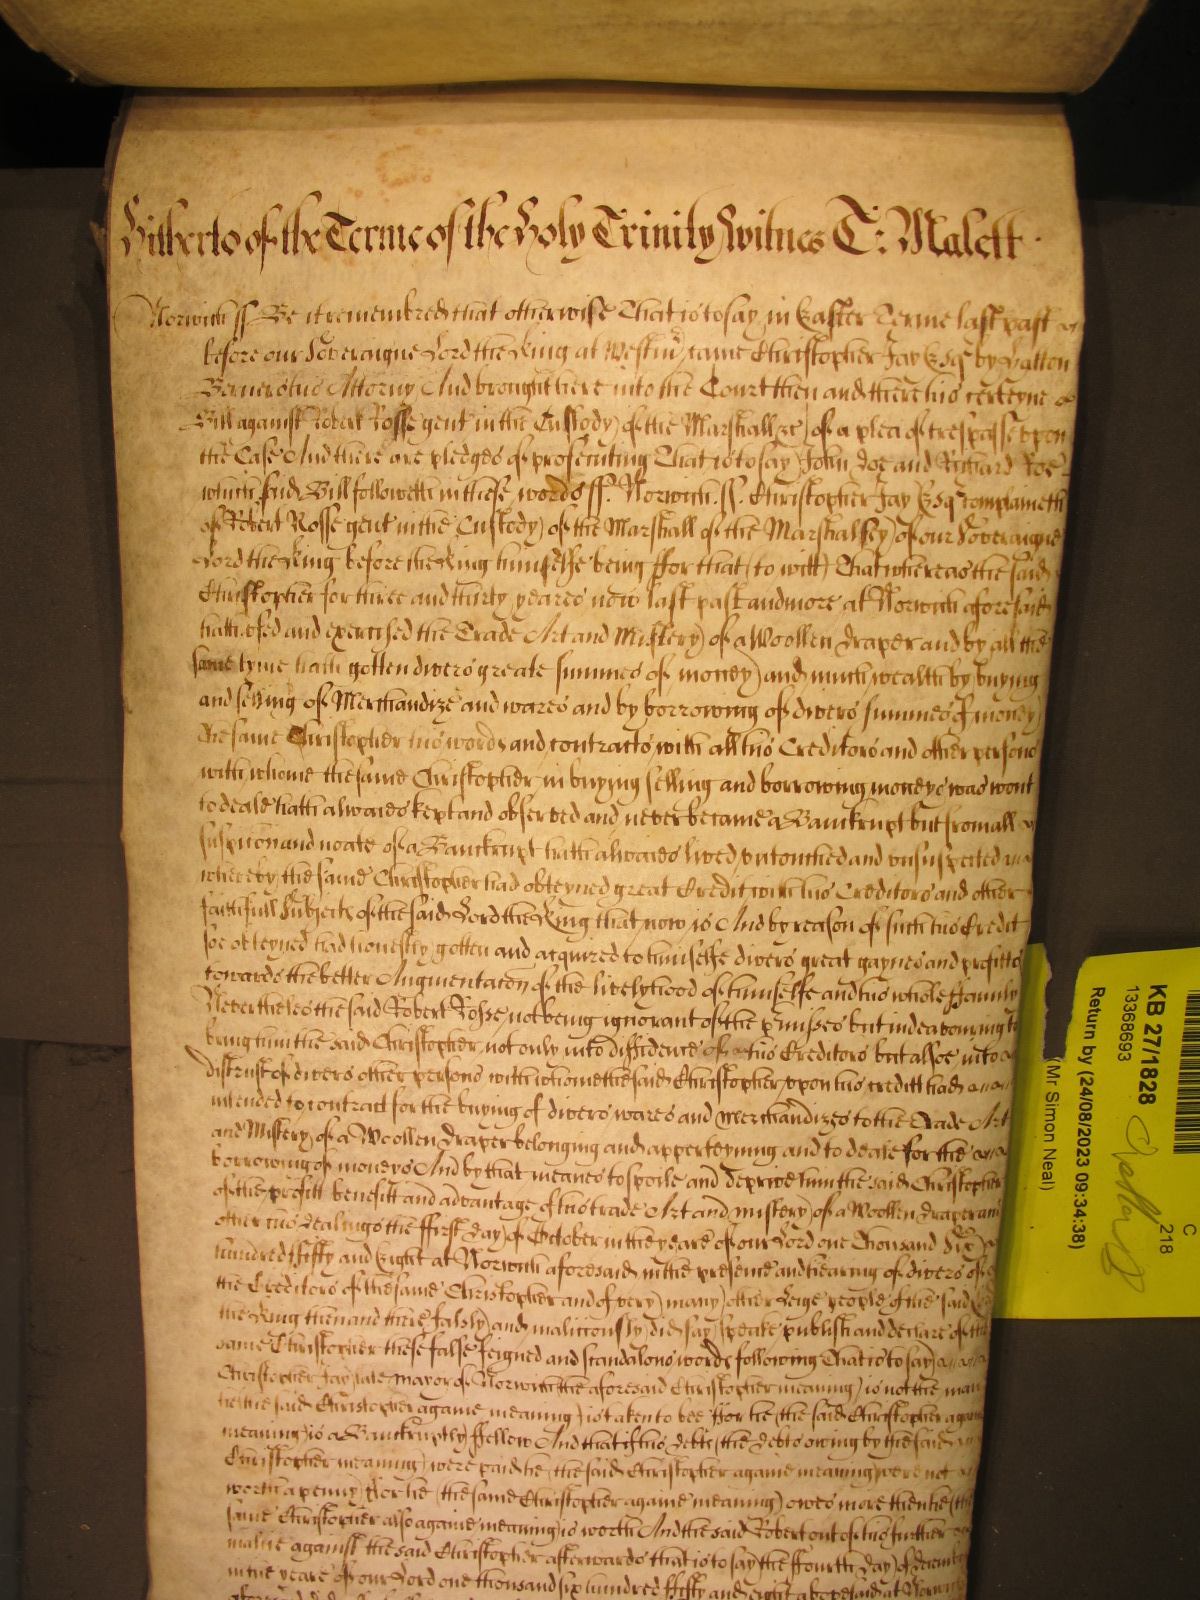 Hitherto of the Terme of the Holy Trinity Witnes T: Malett.
Norwich ss Be it remembred that otherwise That is to say in Easter Terme last past
before our Soveraigne Lord the King at Westmr came Christopher Jay Esqr by Hatton
Berners his Attorny And brought here into the Court then and there his certeyne
Bill against Robert Rosse gent in the Custody of the Marshall &c of a plea of trespasse upon
the Case And there are pledges of prosecuting That is to say John Doe and Richard Roe
which said Bill followeth in these words ss. Norwich ss. Christopher Jay Esqr complaineth
of Robert Rosse gent in the Custody of the Marshall of the Marshalsey of our Soveraigne
Lord the King before the King himselfe being ffor that (to witt) That whereas the said
Christopher for three and thirty yeares now last past and more at Norwich aforesaid
hath used and exercised the Trade Art and Mistery of a Woollen draper and by all the
same tyme hath gotten divers greate summes of money and much wealth by buying
and selling of Merchandize and wares and by borrowing of divers summes of money
The same Christopher his words and contracts with all his Creditors and other persons
with whome the same Christopher in buying selling and borrowing moneys was wont
to deale hath alwaies kept and observed and never became a Banckrupt but from all
suspition and noate of a Banckrupt hath alwaies lived untouched and unsuspected
whereby the same Christopher had obteyned great Credit with his Creditors and other
faithfull Subjects of the said Lord the King that now is And by reason of such his Credit
soe obteyned had honestly gotten and acquired to himselfe divers great gaynes and profitts
towards the better Augmentacon of the livelyhood of himselfe and his whole ffamily
Nevertheles the said Robert Rosse not being ignorant of the p'misses but indeavouring to
bring him the said Christopher not only into diffidence of his Creditors but alsoe into a
distrust of divers other persons with whome the said Christopher upon his creditt had
intended to contract for the buying of divers wares and Merchandizes to the Trade Art
and Mistery of a Woollen draper belonging and apperteyning and to deale for the
borrowing of moneys And by that meanes to spoile and deprive him the said Christopher
of the profitt benefitt and advantage of his trade Art and mistery of a Woollen draper and
other his dealings the ffirst day of October in the yeare of our Lord one Thousand Six
hundred ffifty and Eight at Norwich aforesaid in the presence and hearing of divers of
the Creditors of the same Christopher and of very many other Leige people of the said
the King then and there falsly and malitiously did say speake publish and declare of the
same Christopher these false feigned and scandalous words following That is to say
Christopher Jay late Mayor of Norwich (the aforesaid Christopher meaning) is not the man
he (the said Christopher againe meaning) is taken to bee ffor he (the said Christopher againe
meaning) is a Banckruptly ffellow And that if his debts (the debts owing by the said
Christopher meaning) were paid he (the said Christopher againe meaning) were not
worth a penny ffor he (the same Christopher againe meaning) owes more then he (the
same Christopher also againe meaning) is worth And the said Robert out of his further
malice against the said Christopher afterwards that is to say the ffourth day of december
in the yeare of our Lord one thousand six hundred ffifty and eight abovesaid at Norwich
C
218
KB 27/1828
13368693
Return by (24/08/2023 09:34:38)
(Mr Simon Neal)